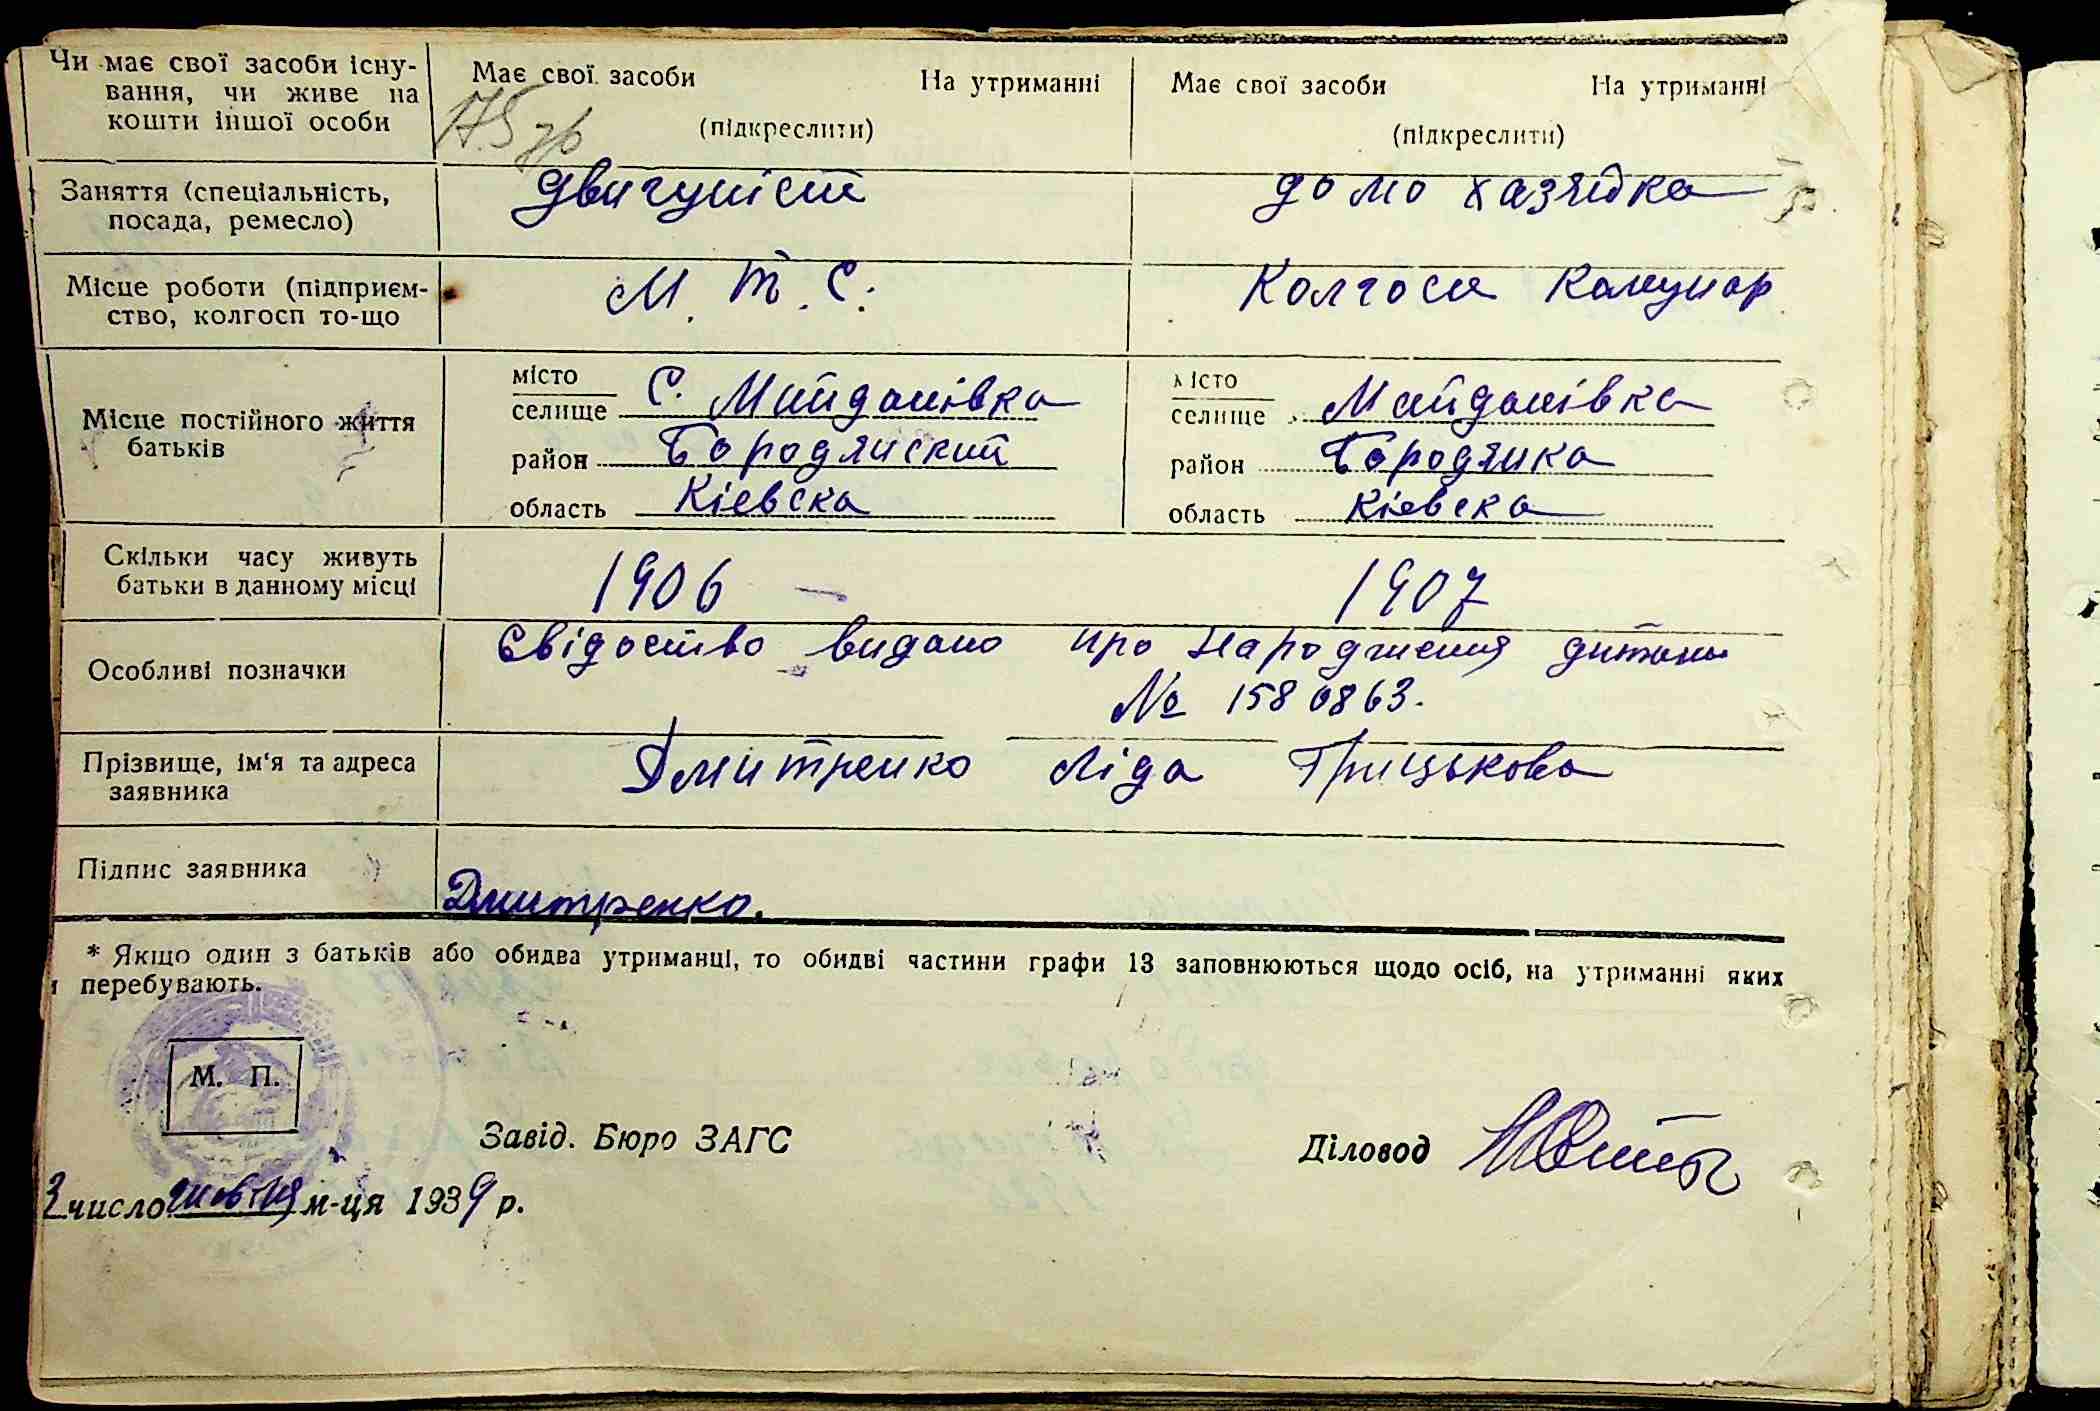 Чи має свої засоби існу-
вання, чи живе на
кошти іншої особи
Має свої засоби На утриманні
(підкреслити)
Має свої засоби На утриманні
(підкреслити)
Заняття (спеціальність,
посада, ремесло)
двигуніст
домо хазяйка
Місце роботи (підприєм-
ство, колгосп то-що
М. Т. С.
Колгосп Комунар
Місце постійного життя
батьків
місто
селище С. Майданівка
район Бородянский
область Кіевска
місто
селище Майданівка
район Бородянка
область Кіевска
Скільки часу живуть
батьки в данному місці
1906 —
1907
Особливі позначки
Свідоство видано про народженя дитини
№ 1580863.
Прізвище, ім'я та адреса
заявника
Дмитренко Ліда Грицькова
Підпис заявника
Дмитренко.
* Якщо один з батьків або обидва утриманці, то обидві частини графи 13 заповнюються щодо осіб, на утриманні яких
перебувають.
М. П.
Завід. Бюро ЗАГС
Діловод
3 число м-ця 1939 р.